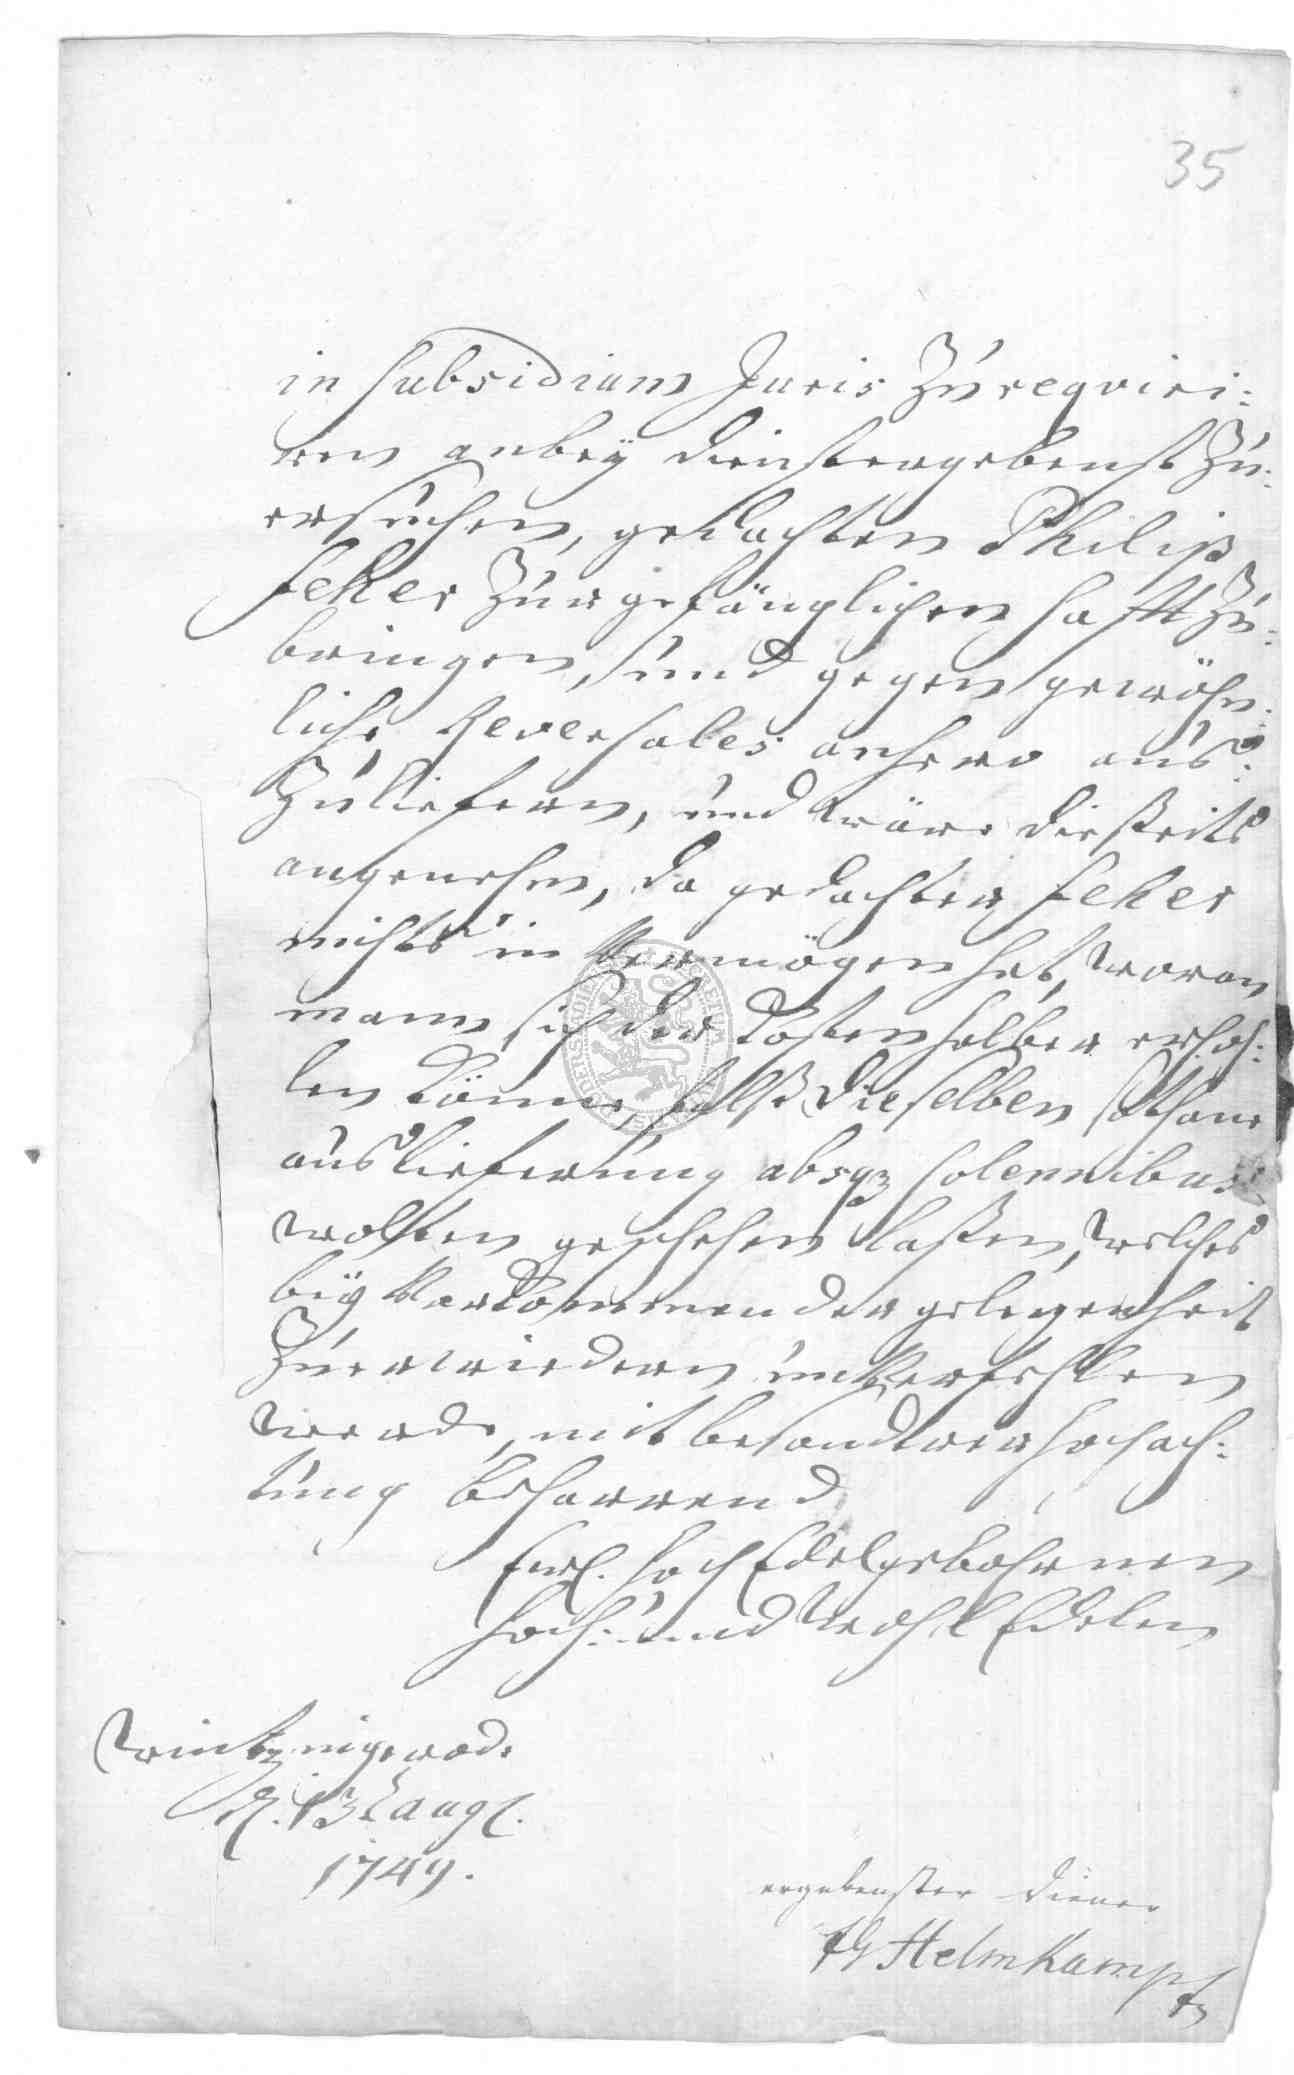 35
in Subsidium Juris zu requiri:
ren anbey dienstergebenst zu:
ersuchen, gedachten Philip
Feker zur gefänglichen hafft zu:
bringen, und gegen gewöhn:
liche Reversales anhero aus:
zuliefern, und wäre diesseits
angenehm, da gedachter Feker
nichts in Vermögen hat, woran
mann sich der Kosten halber erhoh:
len könne, falß dieselben sothane
auslieferung absq3 solennibus
wolten geschehen laßen, welches
bey Vorkommender gelegenheit
zuerwiedern unVerfehlen
werde, mit besonderer hochach:
tung beharrend
Ew. hoch Edelgebohrnen
hoch: und Wohl Edelen
Wintzingerode
d. 13 Aug.
1749.
ergebenster Diener
Helmkampf